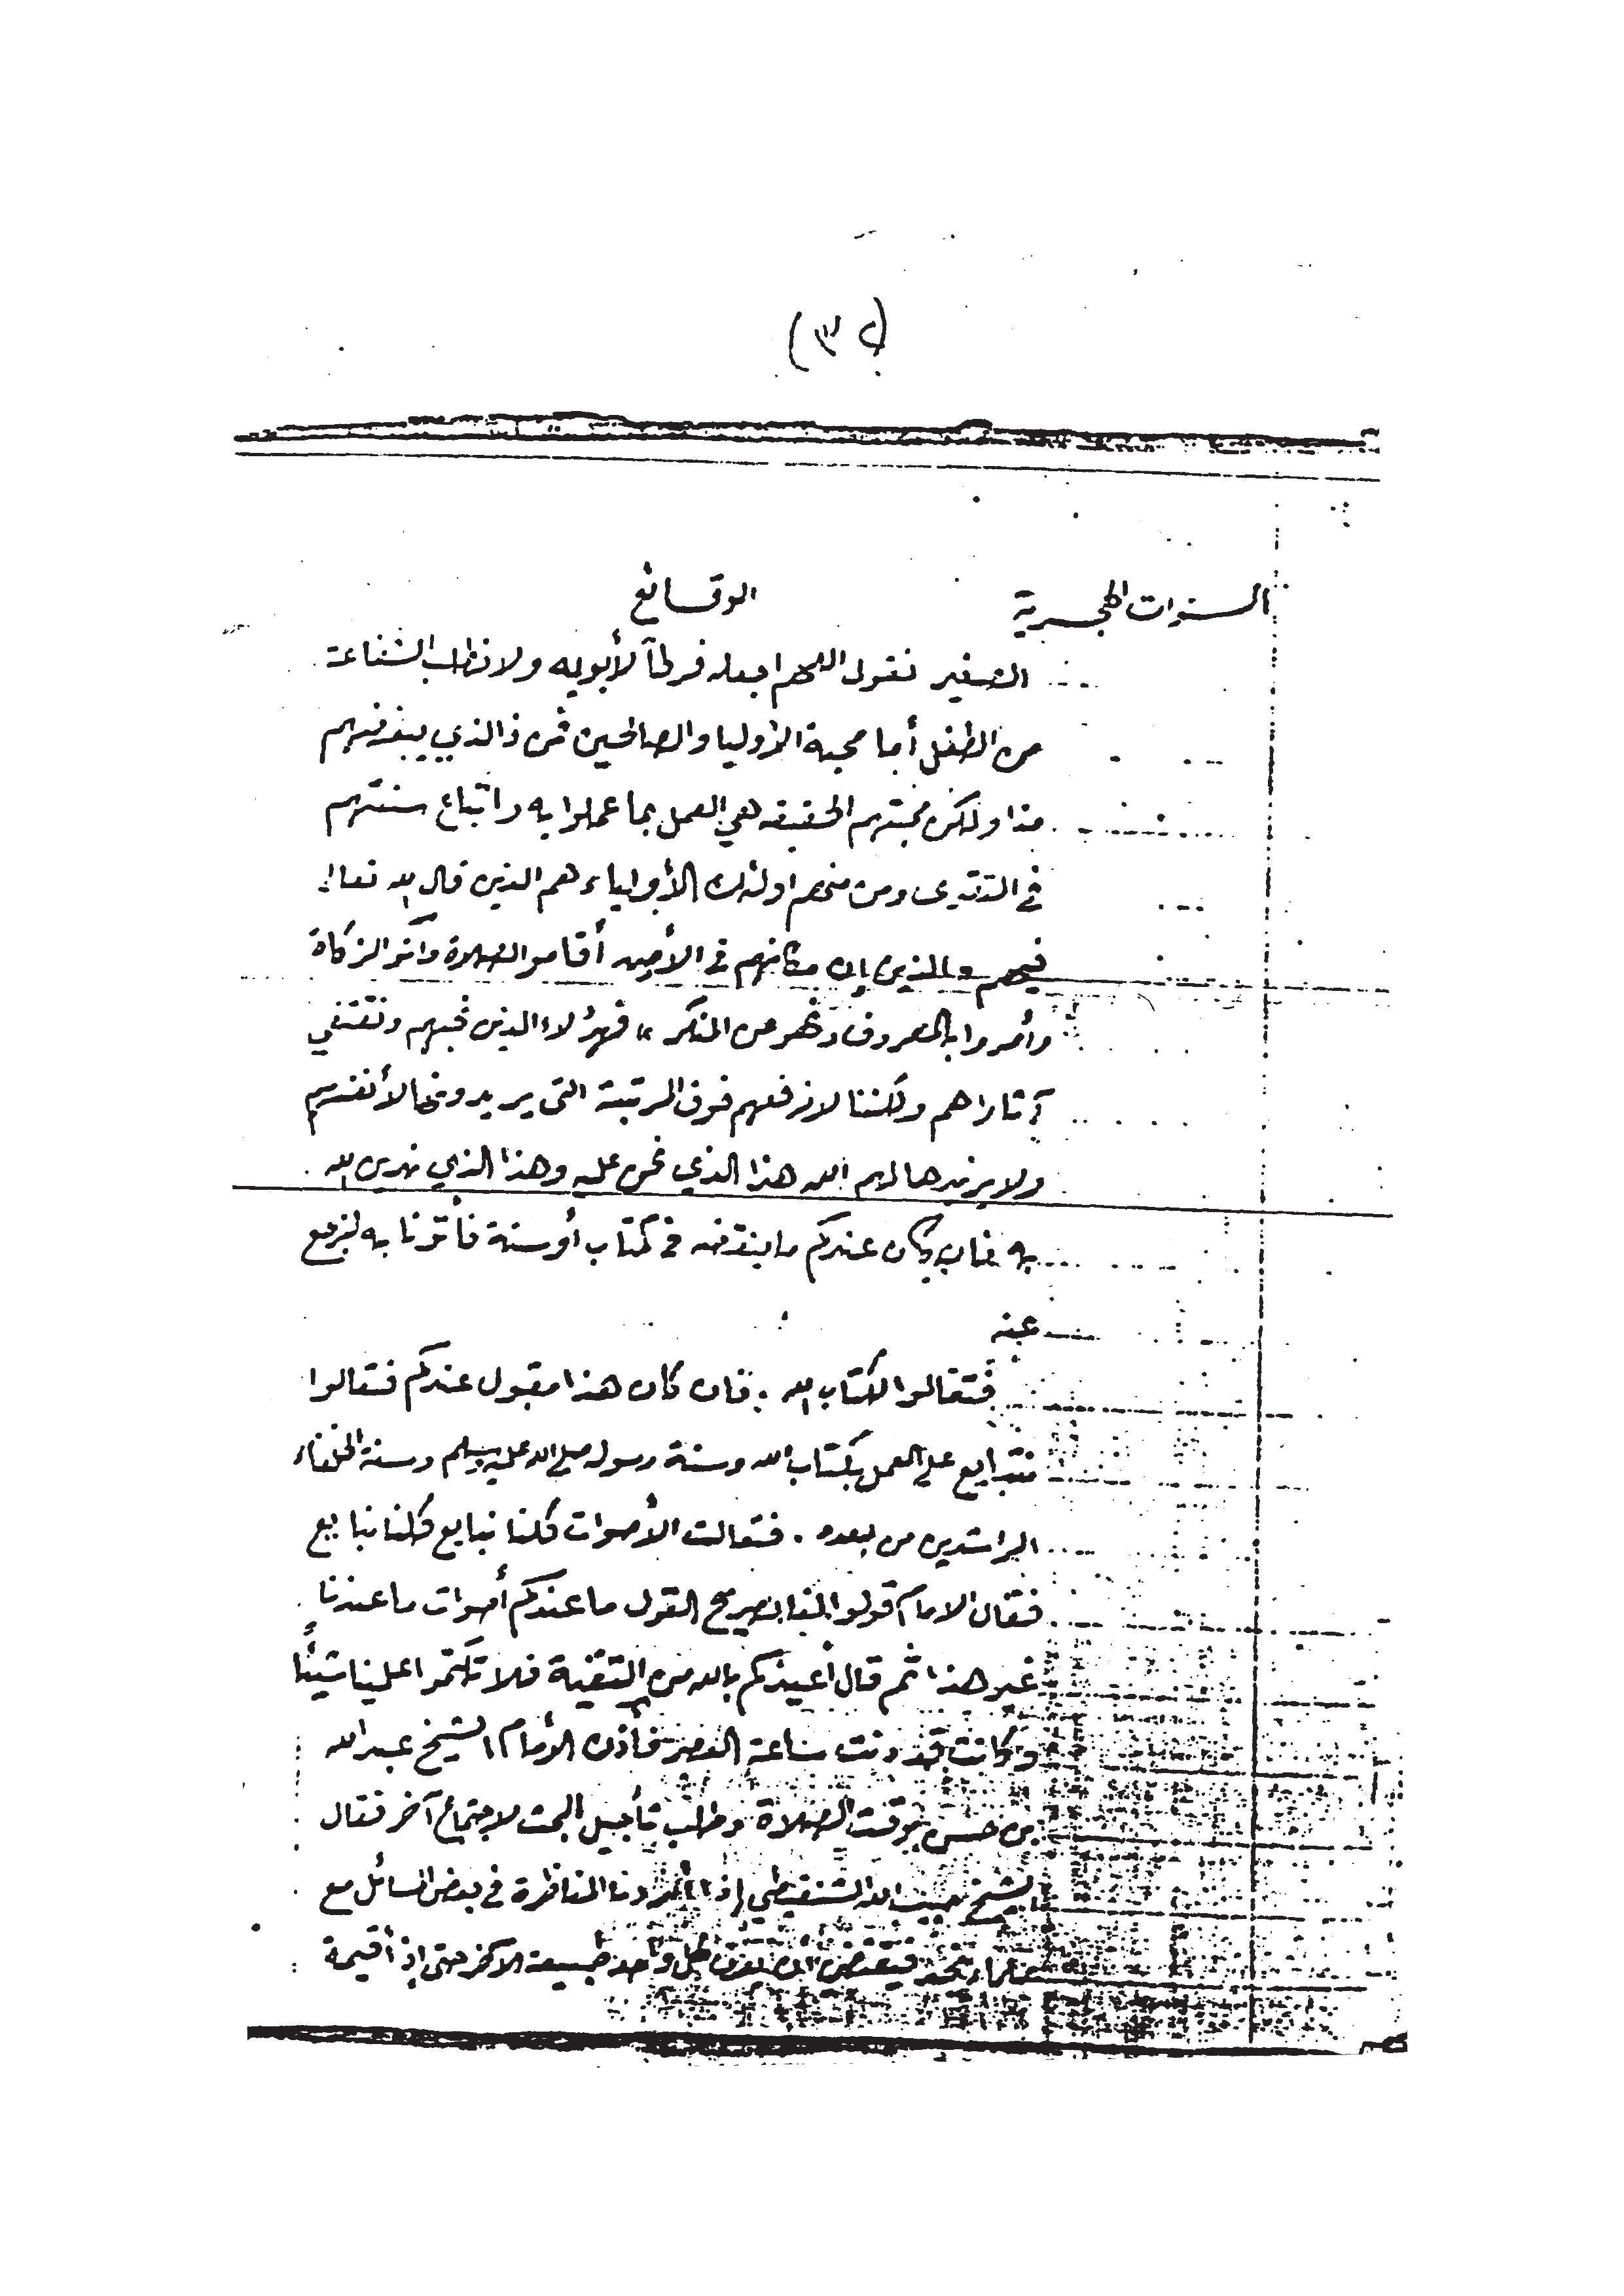 (٣٢)
السنوات الهجرية الوقائع
الصغير نقول اللهم اجعله فرطآ لأبويه ولا نطلب الشفاعة
من الطفل أما محبة الأوليا والصالحين فمن ذا الذي يبغضهم
منا ولكن محبتهم الحقيقه هي العمل بما عملوا به واتباع سنتهم
في التقوى ومن منهم اولئك الأولياء هم الذين قال الله تعالى
فيهم والذين إن مكانهم في الأرض أقاموا الصلاة وآتو الزكاة
وأمروا بالمعروف ونهو عن المنكر » فهؤلاء الذين نحبهم ونقتفي
آثاراهم ولكننا لا نرفعهم فوق المرتبة التي يريدونها لأنفسهم
ولا يريدها لهم الله هذا الذي نحن عليه وهذا الذي ندين الله
به فان كان عندكم ما ينقضه في كتاب أو سنة فأتونا به لنرجع
عنه
فتعالوا لكتاب الله . فان كان هذا مقبول عندكم فتعالوا
نتبايع على العمل بكتاب الله وسنة رسوله صلى الله عليه وسلم وسنة الخلفاء
الراشدين من بعده . فتعالت الأصوات كلنا نبايع كلنا نبايع
فقال الامام قولوا لنا بصريح القول ما عندكم أصوات ما عندنا
غير هذا ثم قال أعيذكم بالله من التقية فلا تكتموا علينا شيئًا
وكانت قد دنت ساعة العصر فأذن الأمام الشيخ عبدالله
بن حسن بوقت الصلاة وطلب تأجيل البحث لاجتماع آخر فقال
الشيخ حبيب الله الشنقيطي إذا أردنا المناظرة في بعض المسائل مع
علماء نجد فيقتضي أن يعرف كل واحد طبيعة الآخر حتى إذ أقيمة